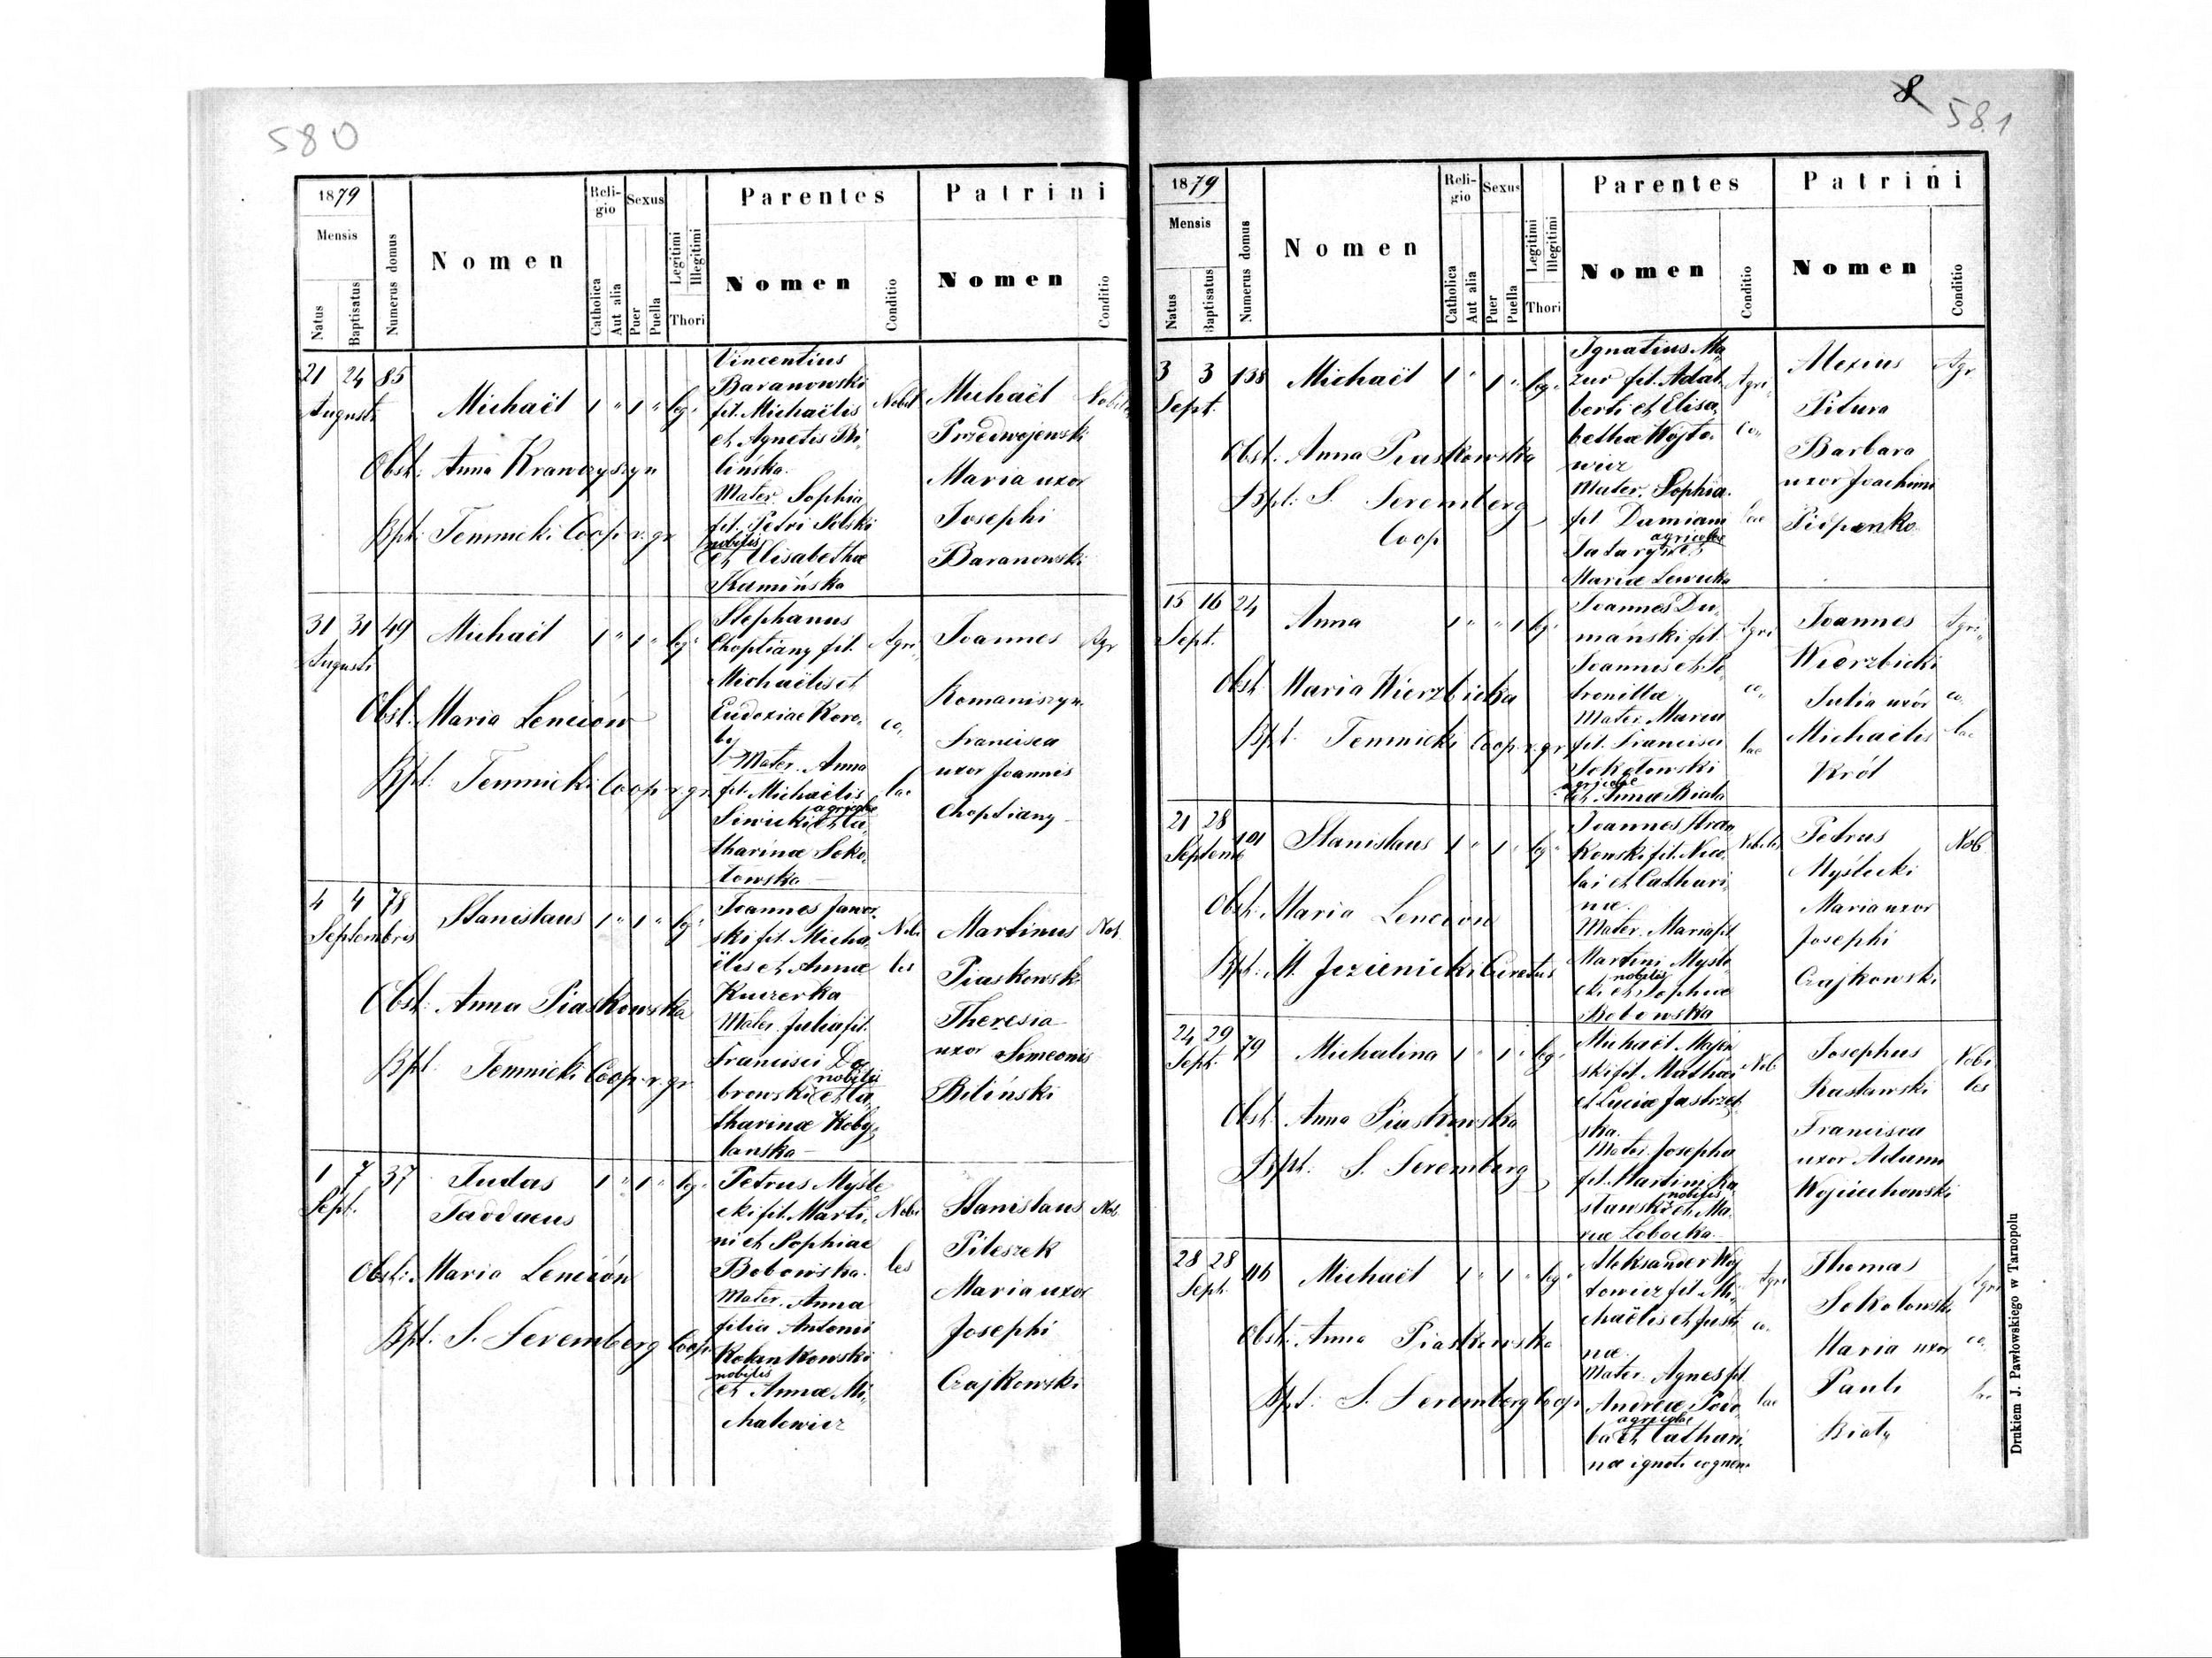 580
1879
Mensis
Natus
Baptisatus
Numerus domus
Nomen
Religio
Catholica
Aut alia
Sexus
Puer
Puella
Legitimi
Illegitimi
Thori
Parentes
Nomen
Conditio
Patrini
Nomen
Conditio
21 24 85
Augusti
Michaël 1 " 1 " leg.
Obst: Anna Krawczyszyn
Bpt: Temnicki Coop r. gr
Vincentius
Baranowski
fil. Michaëlis
et Agnetis Bi
lińska.
Mater. Sophia
fil. Petri
nobilis
et Elisabethae
Kamińska
Nobil
Michaël
Przedwojewski
Maria uxor
Josephi
Baranowski
Nobiles
31 31 49
Augusti
Michaël 1 " 1 " leg.
Obst. Maria Lenciów
Bpt: Temnicki Coop r. gr
Stephanus
Choptiany fil.
Michaëlis et
Eudoxiae Koro,
by
Mater. Anna
fil. Michaëlis
agricolae
Siwicki et Ca,
tharinae Soko,
łowska
Agri,
co,
lae
Joannes
Romaniszyn
Francisca
uxor Joannis
Choptiany
Agr
4 4 78
Septembris
Stanislaus 1 " 1 " leg.
Obst: Anna Piaskowska
Bpt. Temnicki Coop r. gr.
Joannes Jawor
ski fil. Micha,
ëlis et Annae
Kuczerka
Mater. Julia fil.
Francisci Do
nobilis
browski et Ca,
tharinae Koby,
lanska
Nobi
les
Martinus
Piaskowski
Theresia
uxor Simeonis
Biliński
Nob.
1 7 37
Sept.
Judas
Taddaeus
1 " 1 " leg.
Obst: Maria Lenciów
Bpt. S. Seremberg Coop.
Petrus Myśle
cki fil. Marti,
ni et Sophiae
Bobowska.
Mater. Anna
filia Antonii
Kolankowski
nobilis
et Annae Mi,
chalewicz
Nobi
les
Stanislaus
Pileszek
Maria uxor
Josephi
Czajkowski
Nob.
8
581
1879
Mensis
Natus
Baptisatus
Numerus domus
Nomen
Religio
Catholica
Aut alia
Sexus
Puer
Puella
Legitimi
Illegitimi
Thori
Parentes
Nomen
Conditio
Patrini
Nomen
Conditio
3 3 138
Sept.
Michaël 1 " 1 " leg.
Obst. Anna Piaskowska
Bpt: S. Seremberg
Coop
Ignatius Ma
zur fil. Adal,
berti et Elisa,
bethae Wojto,
wicz
Mater. Sophia
fil Damiani
agricolae
Mariae Lewicka
Agri,
co,
lae
Alexius
Pitura
Barbara
uxor Joachimi
Agr
15 16 24
Sept.
Anna 1 " " 1 leg.
Obst Maria Wierzbicka
Bpt. Temnicki Coop r. gr
Joannes Du,
mański fil.
Joannis et Pe
tronillae
Mater. Maria
fil. Francisci
Sokołowski
agricolae
et Annae Biała
Agri
co,
lae
Joannes
Wierzbicki
Julia uxor
Michaëlis
Król
Agri,
co,
lae
21 28 101
Septemb
Stanislaus 1 " 1 " leg.
Obst. Maria Lenciów
Bpt. M. Jezienicki Curatus
Joannes
kowski fil. Nico,
lai et Cathari,
nae.
Mater. Maria fil
Martini Myśle
nobilis
cki et Sophiae
Bobowska
Nobiles
Petrus
Myślecki
Maria uxor
Josephi
Czajkowski
Nob
24 29 79
Sept.
Michalina 1 " 1 " leg.
Obst. Anna Piaskowska
Bpt: S. Seremberg
Michaël
ski fil. Mathaei
et Luciae Jastrzęb
ska.
Mater. Josepha
fil. Martini Ka
nobilis
sławski et Ma,
riae Łobocka
Nob
Josephus
Kasławski
Francisca
uxor Adami
Wojciechowski
Nobi
les
28 28 116
Sept.
Michaël 1 " 1 " leg.
Obst. Anna Piaskowska
Bpt: S. Seremberg Coop.
Aleksander Woj
towicz fil. Mi,
chaëlis et Justi
nae.
Mater. Agnes fil.
Andreae
agricolae
et Cathari,
nae ignoti cognom.
Agri
co,
lae
Thomas
Sokołowski
Maria uxor
Pauli
Biały
Agri
co,
lae
Drukiem J. Pawłowskiego w Tarnopolu